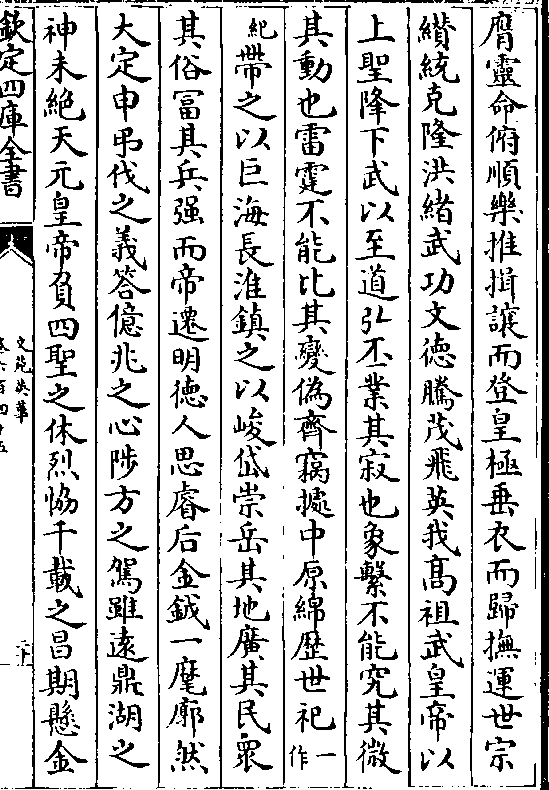 膺靈命俯順樂推揖讓而登皇極垂衣而歸撫運世宗
纉統克隆洪緒武功文德騰茂飛英我髙祖武皇帝以
上聖降下武以至道弘丕業其寂也象繫不能究其微
其動也雷霆不能比其變偽齊竊據中原綿歴世祀一作
紀帶之以巨海長淮鎮之以峻岱崇岳其地廣其民衆
其俗富其兵强而帝遷明德人思睿后金鉞一麾廓然
大定申弔伐之義答億兆之心陟方之駕雖逺鼎湖之
神未絶天元皇帝負四聖之休烈恊千載之昌期懸金
欽定四庫全書
文苑英華
卷六百四十五